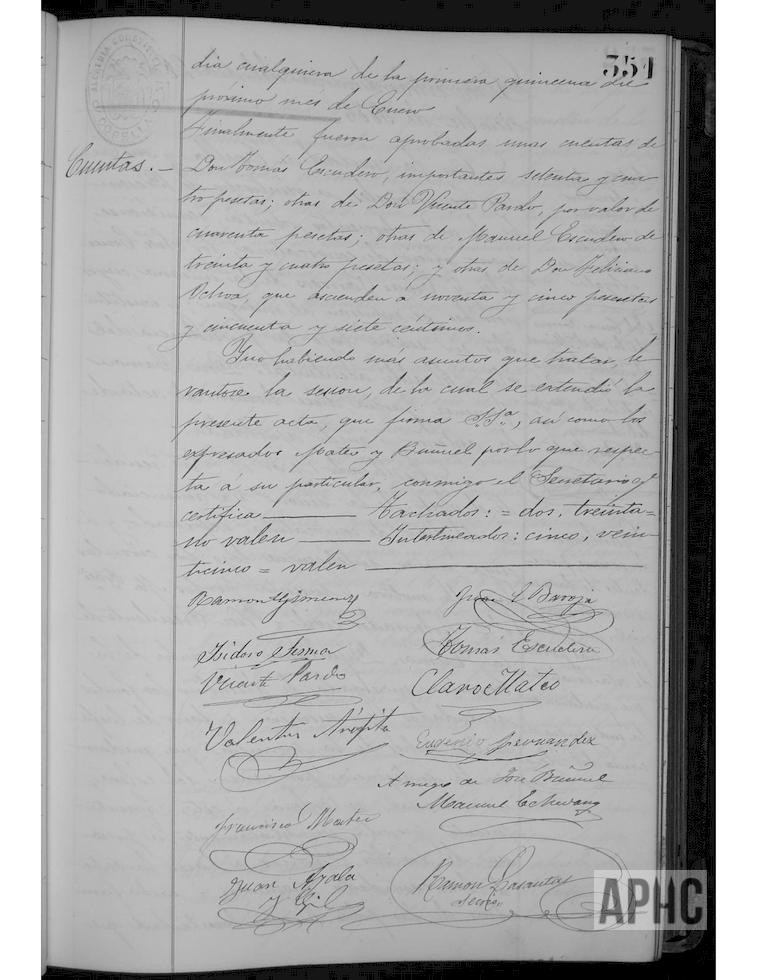 351
dia cualquiera de la primera quincena del
proximo mes de Enero
Finalmente fueron aprobadas unas cuentas de
Cuentas.—
Don Tomás Escudero, importantes setenta y cua-
tro pesetas; otras de Don Vicente Pardo, por valor de
cuarenta pesetas; otras de Manuel Escudero de
treinta y cuatro pesetas; y otras de Don Feliciano
Ochoa, que ascienden a noventa y cinco pesetas
y cincuenta y siete céntimos.
Y no habiendo más asuntos que tratar, le-
vantose la sesion, de la cual se extendió la
presente acta, que firma S.Sª., así como los
expresados Mateo y Buñuel por lo que respec-
ta a su particular, conmigo el Secretario q.
certifica — Tachados: = dos, treinta =
no valen — Interlineados: cinco, vein-
ticinco = valen —
Ramon Gimenez
Juan C Baroja
Isidoro Sesma
Tomás Escudero
Vicente Pardo
Claro Mateo
Valentin
Eugenio Fernandez
A ruego de José Buñuel
Manuel
Francisco Mateo
Juan Ayala
y Gil
Ramon
Secrio.
APHC